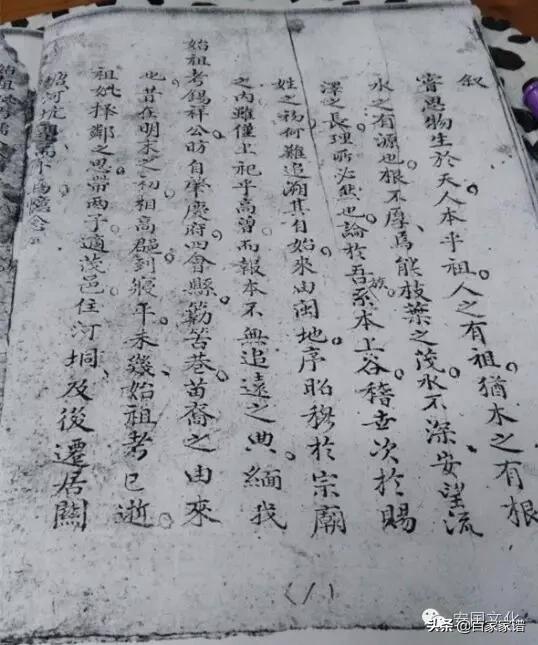 叙
嘗思物生於天人本乎祖人之有祖猶木之有根
水之有源也根不厚焉能枝葉之茂水不深安望流
澤之長理所必然也論於吾族系本上谷稽世次於賜
姓之初何難追溯其自始來由閩地序昭穆於宗廟
之内雖僅上祀乎高曾而報本不無追遠之典緬我
始祖考錫祥公昉自肇慶府四會縣簕苦巷苗裔之由來
也昔在明末之初相高邑到縣年未幾始祖考已逝
祖妣择鄰之思帶兩子適茂邑住河垌及後遷居闗
塘河坑
為憶念
(1)
安国文化
头条 @百家家谱